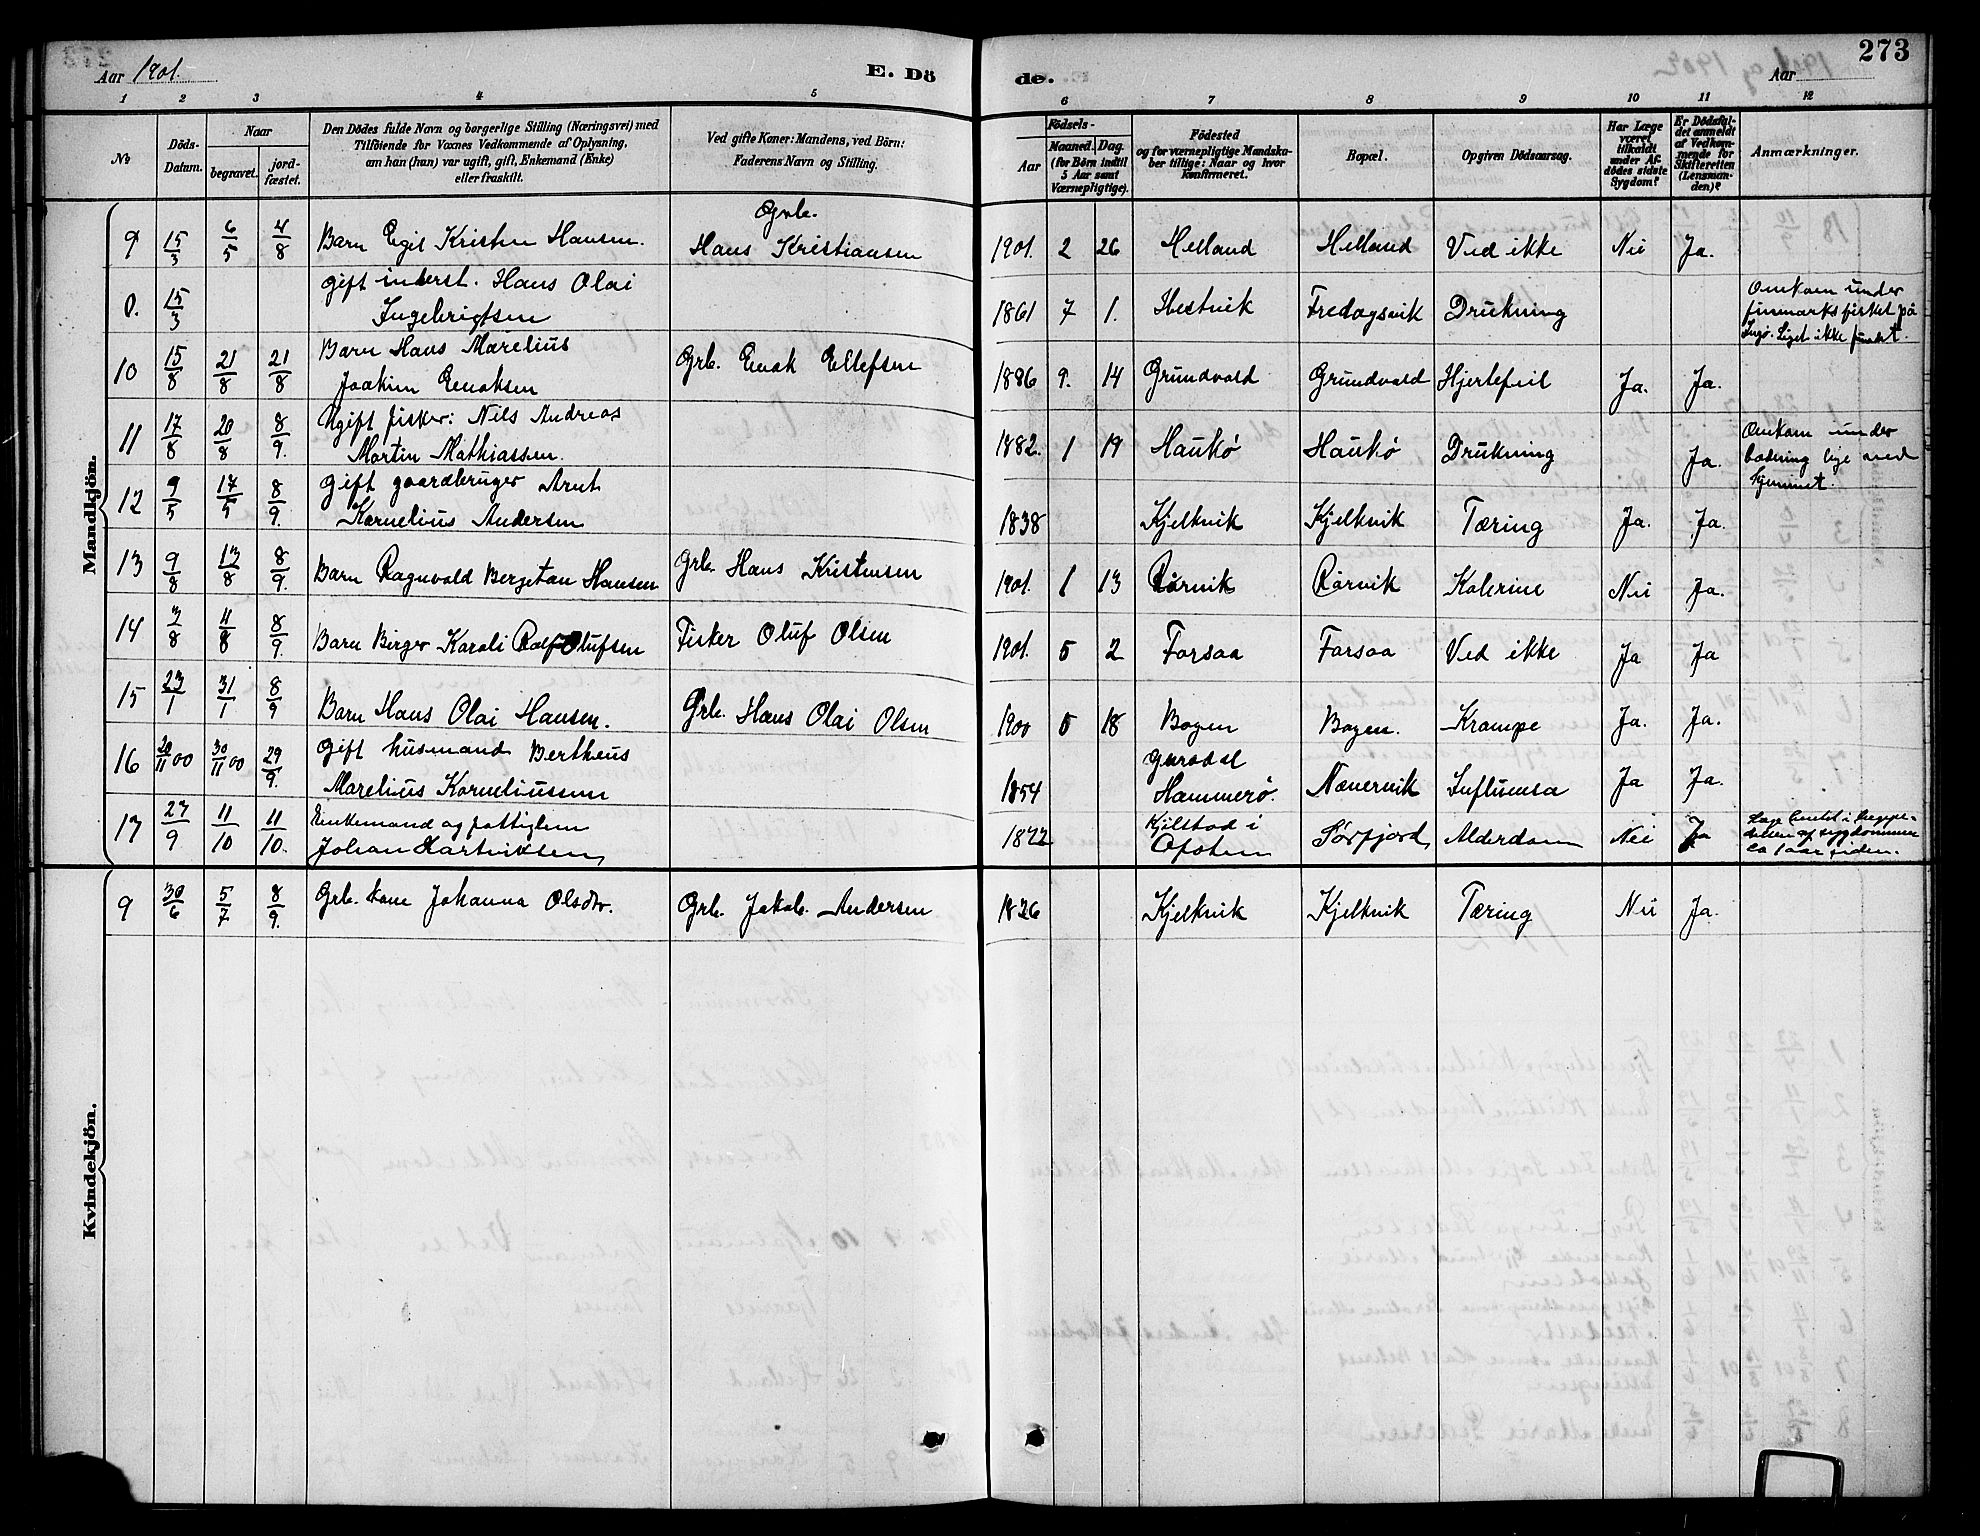 Aar 1901.
E. Dö
de.
Aar
273
1 2 3 4 5 6 7 8 9 10 11 12
No
Döds-Datum.
Naar
begravet.
jord-fæstet.
Den Dödes fulde Navn og borgerlige Stilling (Næringsvei) med
Tilföiende for Voxnes Vedkommende af Oplysning,
om han (hun) var ugift, gift, Enkemand (Enke)
eller fraskilt.
Ved gifte Koner: Mandens, ved Börn:
Faderens Navn og Stilling.
Födsels-
Aar
Maaned. Dag.
(for Börn indtil
5 Aar samt
Værnepligtige).
Födested
og for værnepligtige Mandska-
ber tillige: Naar og hvor
konfirmeret.
Bopæl.
Opgiven Dödsaarsag.
Har Læge
været
tilkaldt
under Af-
dödes sidste
Sygdom?
Er Dödsfal-
det anmeldt
af Vedkom-
mende for
Skifteretten
(Lensman-
den)?
Anmærkninger.
Mandkjön.
9 15/3 6/5 4/8 Barn Egil Kristen Hansen. Grb. Hans Kristiansen 1901. 2 26 Helland Helland Ved ikke Nei Ja.
0. 15/3 gift inderst. Hans Olai
Ingebrigtsen 1861 7 1. Hestvik Fredagsvik Drukning Omkom under
finmarksfisket på
Ingø. Liget ikke fundet.
10 15/8 21/8 21/8 Barn Hans Marelius
Joakim Enoksen Grb. Enok Ellefsen 1886 9. 14 Grundvold Grundvold Hjertefeil Ja. Ja.
11 17/8 20/8 8/9. Ugift fisker: Nils Andreas
Martin Mathiassen. 1882. 1 19 Haukø Haukø Drukning Ja. Omkom under
badning lige ved
hjemmet.
12 9/5 17/5 8/9. Gift gaardbruger Arnt
Kornelius Andersen 1838 Kjelkvik Kjelkvik Tæring Ja. Ja.
13 9/8 13/8 8/9. Barn Ragnvald Bergetan Hansen Grb. Hans Kristensen 1901. 1 13 Rørvik Rørvik Kolerine Nei Ja.
14 3/8 11/8 8/9. Barn Birger Karoli Rolf Olufsen Fisker Oluf Olsen 1901. 5 2 Forsaa Forsaa Ved ikke Ja Ja
15 23/1 31/1 8/9 Barn Hans Olai Hansen. Grb. Hans Olai Olsen 1900 5 18 Bogen Bogen. Krampe Ja. Ja.
16 20/11 00 30/11 00 29/9. Gift husmand Bertheus
Marelius Korneliussen 1854 Hammerø. Nævervik Influensa Ja Ja.
17 27/9 11/10 11/10. Enkemand og fattiglem
Johan Hartviksen 1822 Kjilstad i
Ofoten Sørfjord Alderdom Nei Ja
ca 1 aar siden.
Kvindekjön.
9 30/6 5/7 8/9. Grb. kone Johanna Olsdtr. Grb. Jakob Andersen 1836 Kjelkvik Kjelkvik Tæring Nei Ja.